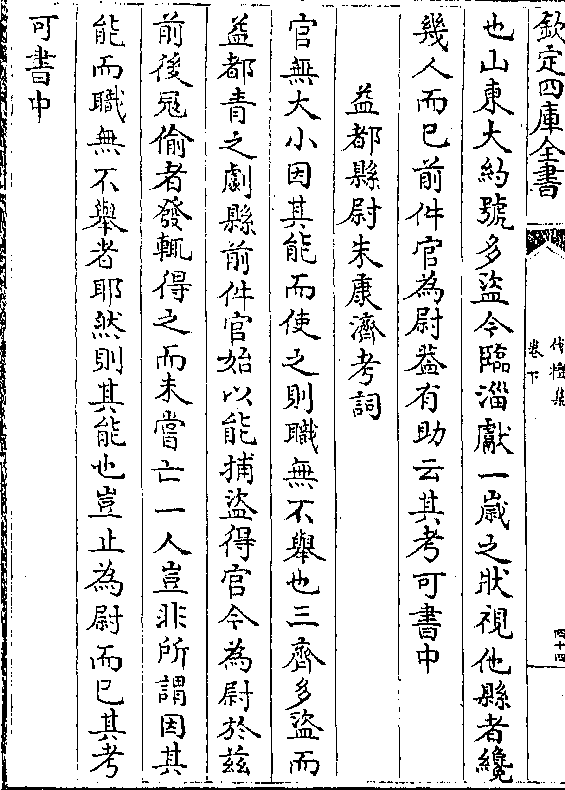 欽定四庫全書
卷下
四十四
也山東大約號多盜今臨淄獻一歲之狀視他縣者纔
幾人而已前件官為尉蓋有助云其考可書中
益都縣尉朱康濟考詞
官無大小因其能而使之則職無不舉也三齊多盜而
益都青之劇縣前件官始以能捕盜得官今為尉於茲
前後冦偷者發輒得之而未嘗亡一人豈非所謂因其
能而職無不舉者耶然則其能也豈止為尉而已其考
可書中